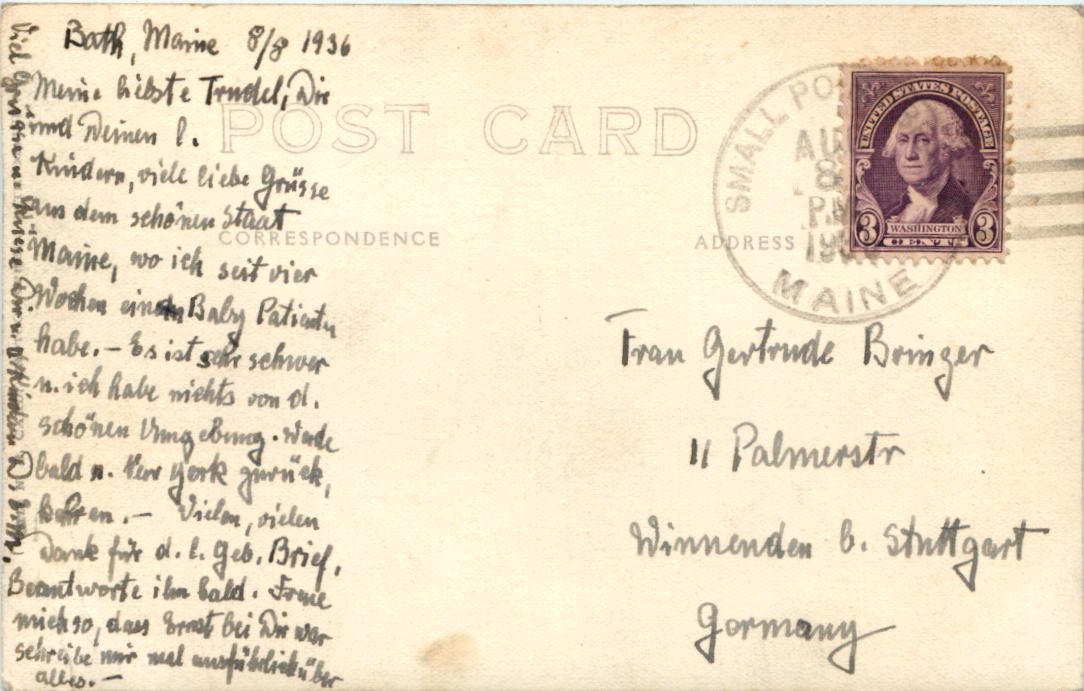 Bath, Maine 8/8 1936
Meine liebste Trudel, Dir
und Deinen l.
Kindern, viele liebe Grüsse
aus dem schönen Staat
Maine, wo ich seit vier
Wochen einen Baby Patienten
habe. - Es ist sehr schwer
u. ich habe nichts von d.
schönen Umgebung. Werde
bald n. New York zurück,
kehren. - Vielen, vielen
Dank für d. l. Geb. Brief.
Beantworte ihn bald. Freue
mich so, dass Ernst bei Dir war
schreibe mir mal ausführlich über
alles. -
Viel Grüsse u. Küsse Dir u.
POST CARD
CORRESPONDENCE
ADDRESS
SMALL PO
AUG
8
P.M
19
MAINE
UNITED STATES POSTAGE
3 WASHINGTON 3
CENTS
Frau Gertrude Bringer
11 Palmerstr
Winnenden b. Stuttgart
Germany